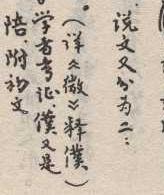 说文又分为二：
（详《微》释僕。
学者考证，僕又是
陪、附初文）